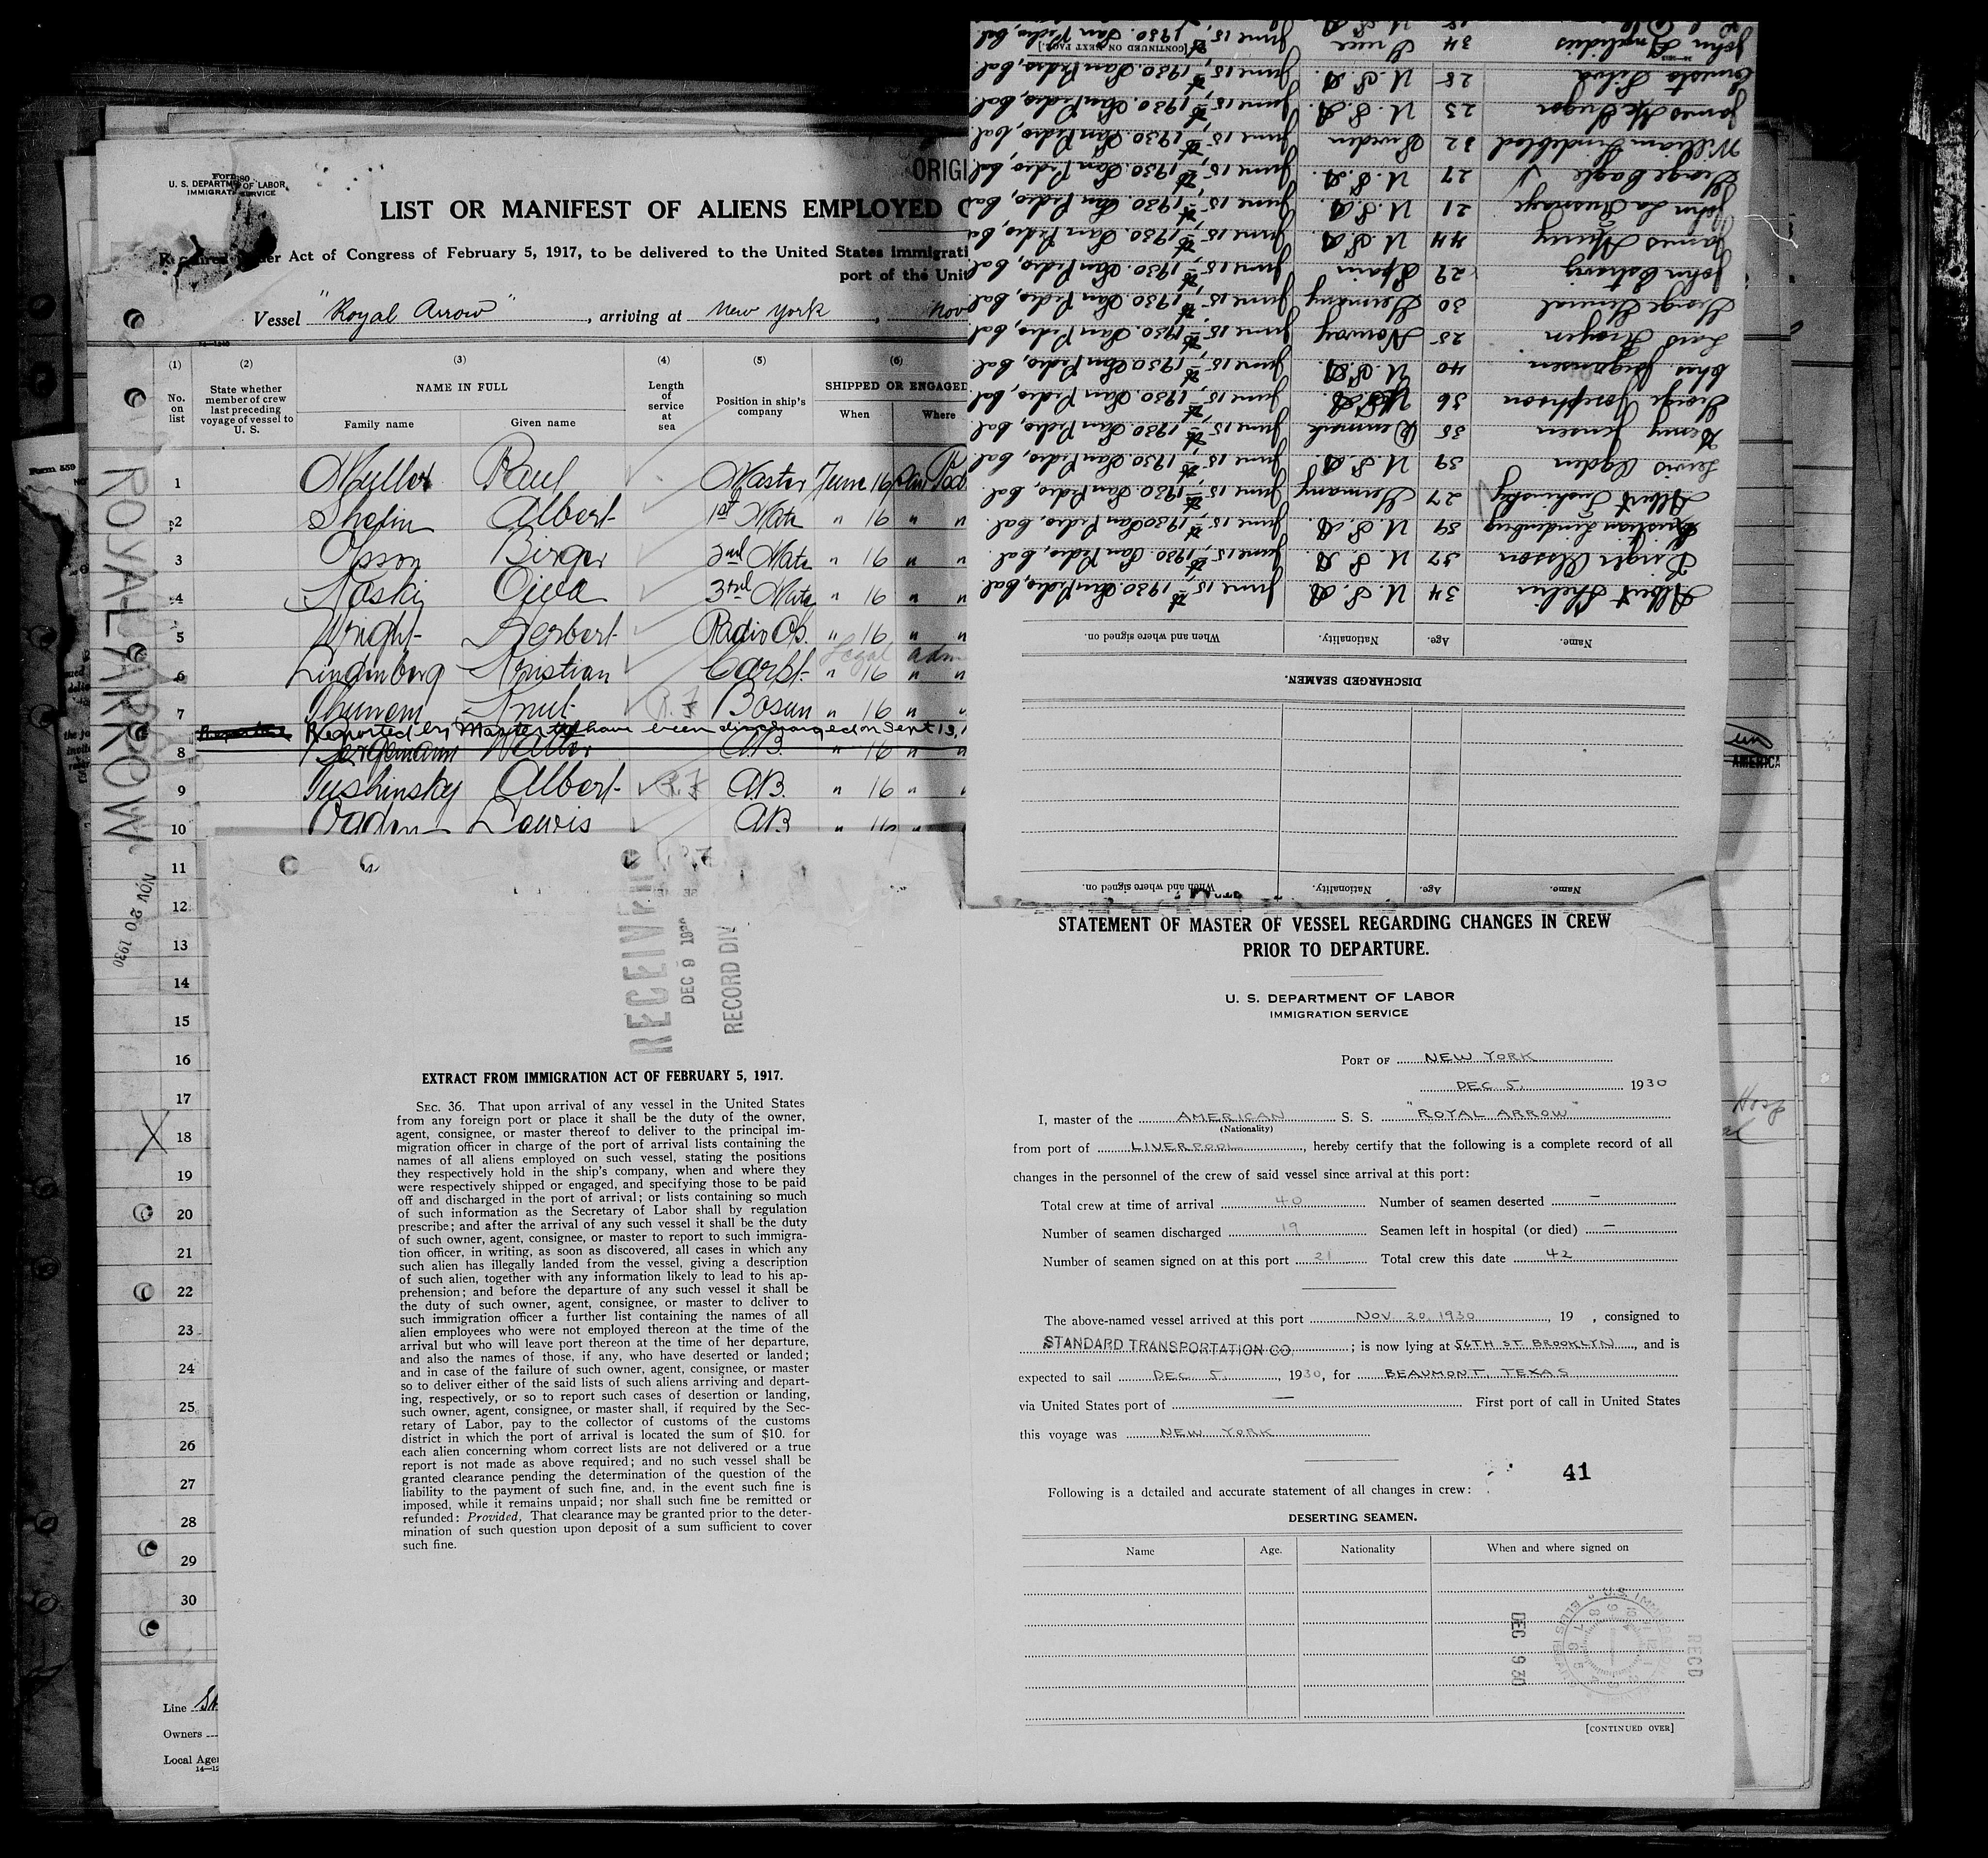 Form 680
U. S. DEPARTMENT OF LABOR
IMMIGRATION SERVICE
ORIGI
LIST OR MANIFEST OF ALIENS EMPLOYED O
Required under Act of Congress of February 5, 1917, to be delivered to the United States immigrati
port of the Unit
Vessel "Royal Arrow", arriving at New York, Nov
(1) (2) (3) (4) (5) (6)
No. on list
State whether member of crew last preceding voyage of vessel to U. S.
NAME IN FULL
Family name Given name
Length of service at sea
Position in ship's company
SHIPPED OR ENGAGED
When Where
1 Muller Paul Master June 16
2 Shelin Albert 1st Mate " 16 " "
3 Olsson Birger 2nd Mate " 16 " "
4 Koski Oiva 3rd Mate " 16 " "
5 Wright Herbert Radio Op. " 16 " "
Legal adm
6 Lindenberg Kristian Carpt. " 16 " "
7 Knut Bosun " 16 " "
Reported by Master to have been discharged on Sept 13, 1
8 Walter A.B. " 16 " "
9 Tushinsky Albert A.B. " 16 " "
10 Ogden Lewis A.B. " 16 " "
11
12
13
14
15
16
17
18
19
20
21
22
23
24
25
26
27
28
29
30
ROYAL ARROW
NOV 20 1930
Form 559
Line
Owners
Local Age
14—12
RECEIVED
DEC 9 1930
RECORD DIV
EXTRACT FROM IMMIGRATION ACT OF FEBRUARY 5, 1917.
SEC. 36. That upon arrival of any vessel in the United States
from any foreign port or place it shall be the duty of the owner,
agent, consignee, or master thereof to deliver to the principal im-
migration officer in charge of the port of arrival lists containing the
names of all aliens employed on such vessel, stating the positions
they respectively hold in the ship's company, when and where they
were respectively shipped or engaged, and specifying those to be paid
off and discharged in the port of arrival; or lists containing so much
of such information as the Secretary of Labor shall by regulation
prescribe; and after the arrival of any such vessel it shall be the duty
of such owner, agent, consignee, or master to report to such immigra-
tion officer, in writing, as soon as discovered, all cases in which any
such alien has illegally landed from the vessel, giving a description
of such alien, together with any information likely to lead to his ap-
prehension; and before the departure of any such vessel it shall be
the duty of such owner, agent, consignee, or master to deliver to
such immigration officer a further list containing the names of all
alien employees who were not employed thereon at the time of the
arrival but who will leave port thereon at the time of her departure,
and also the names of those, if any, who have deserted or landed;
and in case of the failure of such owner, agent, consignee, or master
so to deliver either of the said lists of such aliens arriving and depart-
ing, respectively, or so to report such cases of desertion or landing,
such owner, agent, consignee, or master shall, if required by the Sec-
retary of Labor, pay to the collector of customs of the customs
district in which the port of arrival is located the sum of $10. for
each alien concerning whom correct lists are not delivered or a true
report is not made as above required; and no such vessel shall be
granted clearance pending the determination of the question of the
liability to the payment of such fine, and, in the event such fine is
imposed, while it remains unpaid; nor shall such fine be remitted or
refunded: Provided, That clearance may be granted prior to the deter-
mination of such question upon deposit of a sum sufficient to cover
such fine.
Name. Age. Nationality. When and where signed on.
DISCHARGED SEAMEN.
Name. Age. Nationality. When and where signed on.
Albert Shelin 34 U.S.A. June 15th, 1930. San Pedro, Cal.
Birger Olsson 37 U.S.A. June 15th, 1930. San Pedro, Cal.
Kristian Lindenberg 59 U.S.A. June 15th, 1930 San Pedro, Cal.
Albert Tushinsky 27 Germany June 15th, 1930. San Pedro, Cal.
Lewis Ogden 39 U.S.A. June 15th, 1930. San Pedro, Cal.
Henry Jensen 35 Denmark June 15th, 1930. San Pedro, Cal.
George Josephson 36 U.S.A. June 15th, 1930. San Pedro, Cal.
Chas Jorgansen 40 U.S.A. June 15th, 1930 San Pedro, Cal.
Lars 25 Norway June 15th, 1930. San Pedro, Cal.
George 30 Germany June 15th, 1930. San Pedro, Cal.
John 29 Spain June 15th, 1930. San Pedro, Cal.
James 44 U.S.A. June 15th, 1930. San Pedro, Cal.
John La 21 U.S.A. June 15th, 1930. San Pedro, Cal.
George Cagle 27 U.S.A. June 15th, 1930. San Pedro, Cal.
William Lindeblad 32 Sweden June 15th, 1930. San Pedro, Cal.
James 23 U.S.A. June 15th, 1930. San Pedro, Cal.
Ernesto Silva 28 U.S.A. June 15th, 1930. San Pedro, Cal.
John 34 Greece June 15, 1930. San Pedro, Cal.
[CONTINUED ON NEXT PAGE.]
STATEMENT OF MASTER OF VESSEL REGARDING CHANGES IN CREW
PRIOR TO DEPARTURE.
U. S. DEPARTMENT OF LABOR
IMMIGRATION SERVICE
PORT OF NEW YORK
DEC 5. 1930
I, master of the AMERICAN S. S. "ROYAL ARROW"
(Nationality)
from port of LIVERPOOL, hereby certify that the following is a complete record of all
changes in the personnel of the crew of said vessel since arrival at this port:
Total crew at time of arrival 40 Number of seamen deserted —
Number of seamen discharged 19 Seamen left in hospital (or died) —
Number of seamen signed on at this port 21 Total crew this date 42
The above-named vessel arrived at this port NOV. 20. 1930, 19 , consigned to
STANDARD TRANSPORTATION CO.; is now lying at 56TH ST. BROOKLYN, and is
expected to sail DEC. 5., 1930, for BEAUMONT, TEXAS
via United States port of — First port of call in United States
this voyage was NEW YORK
41
Following is a detailed and accurate statement of all changes in crew:
DESERTING SEAMEN.
Name Age. Nationality When and where signed on
DEC 9 30
REC'D
[CONTINUED OVER]
AMERICA
Hosp